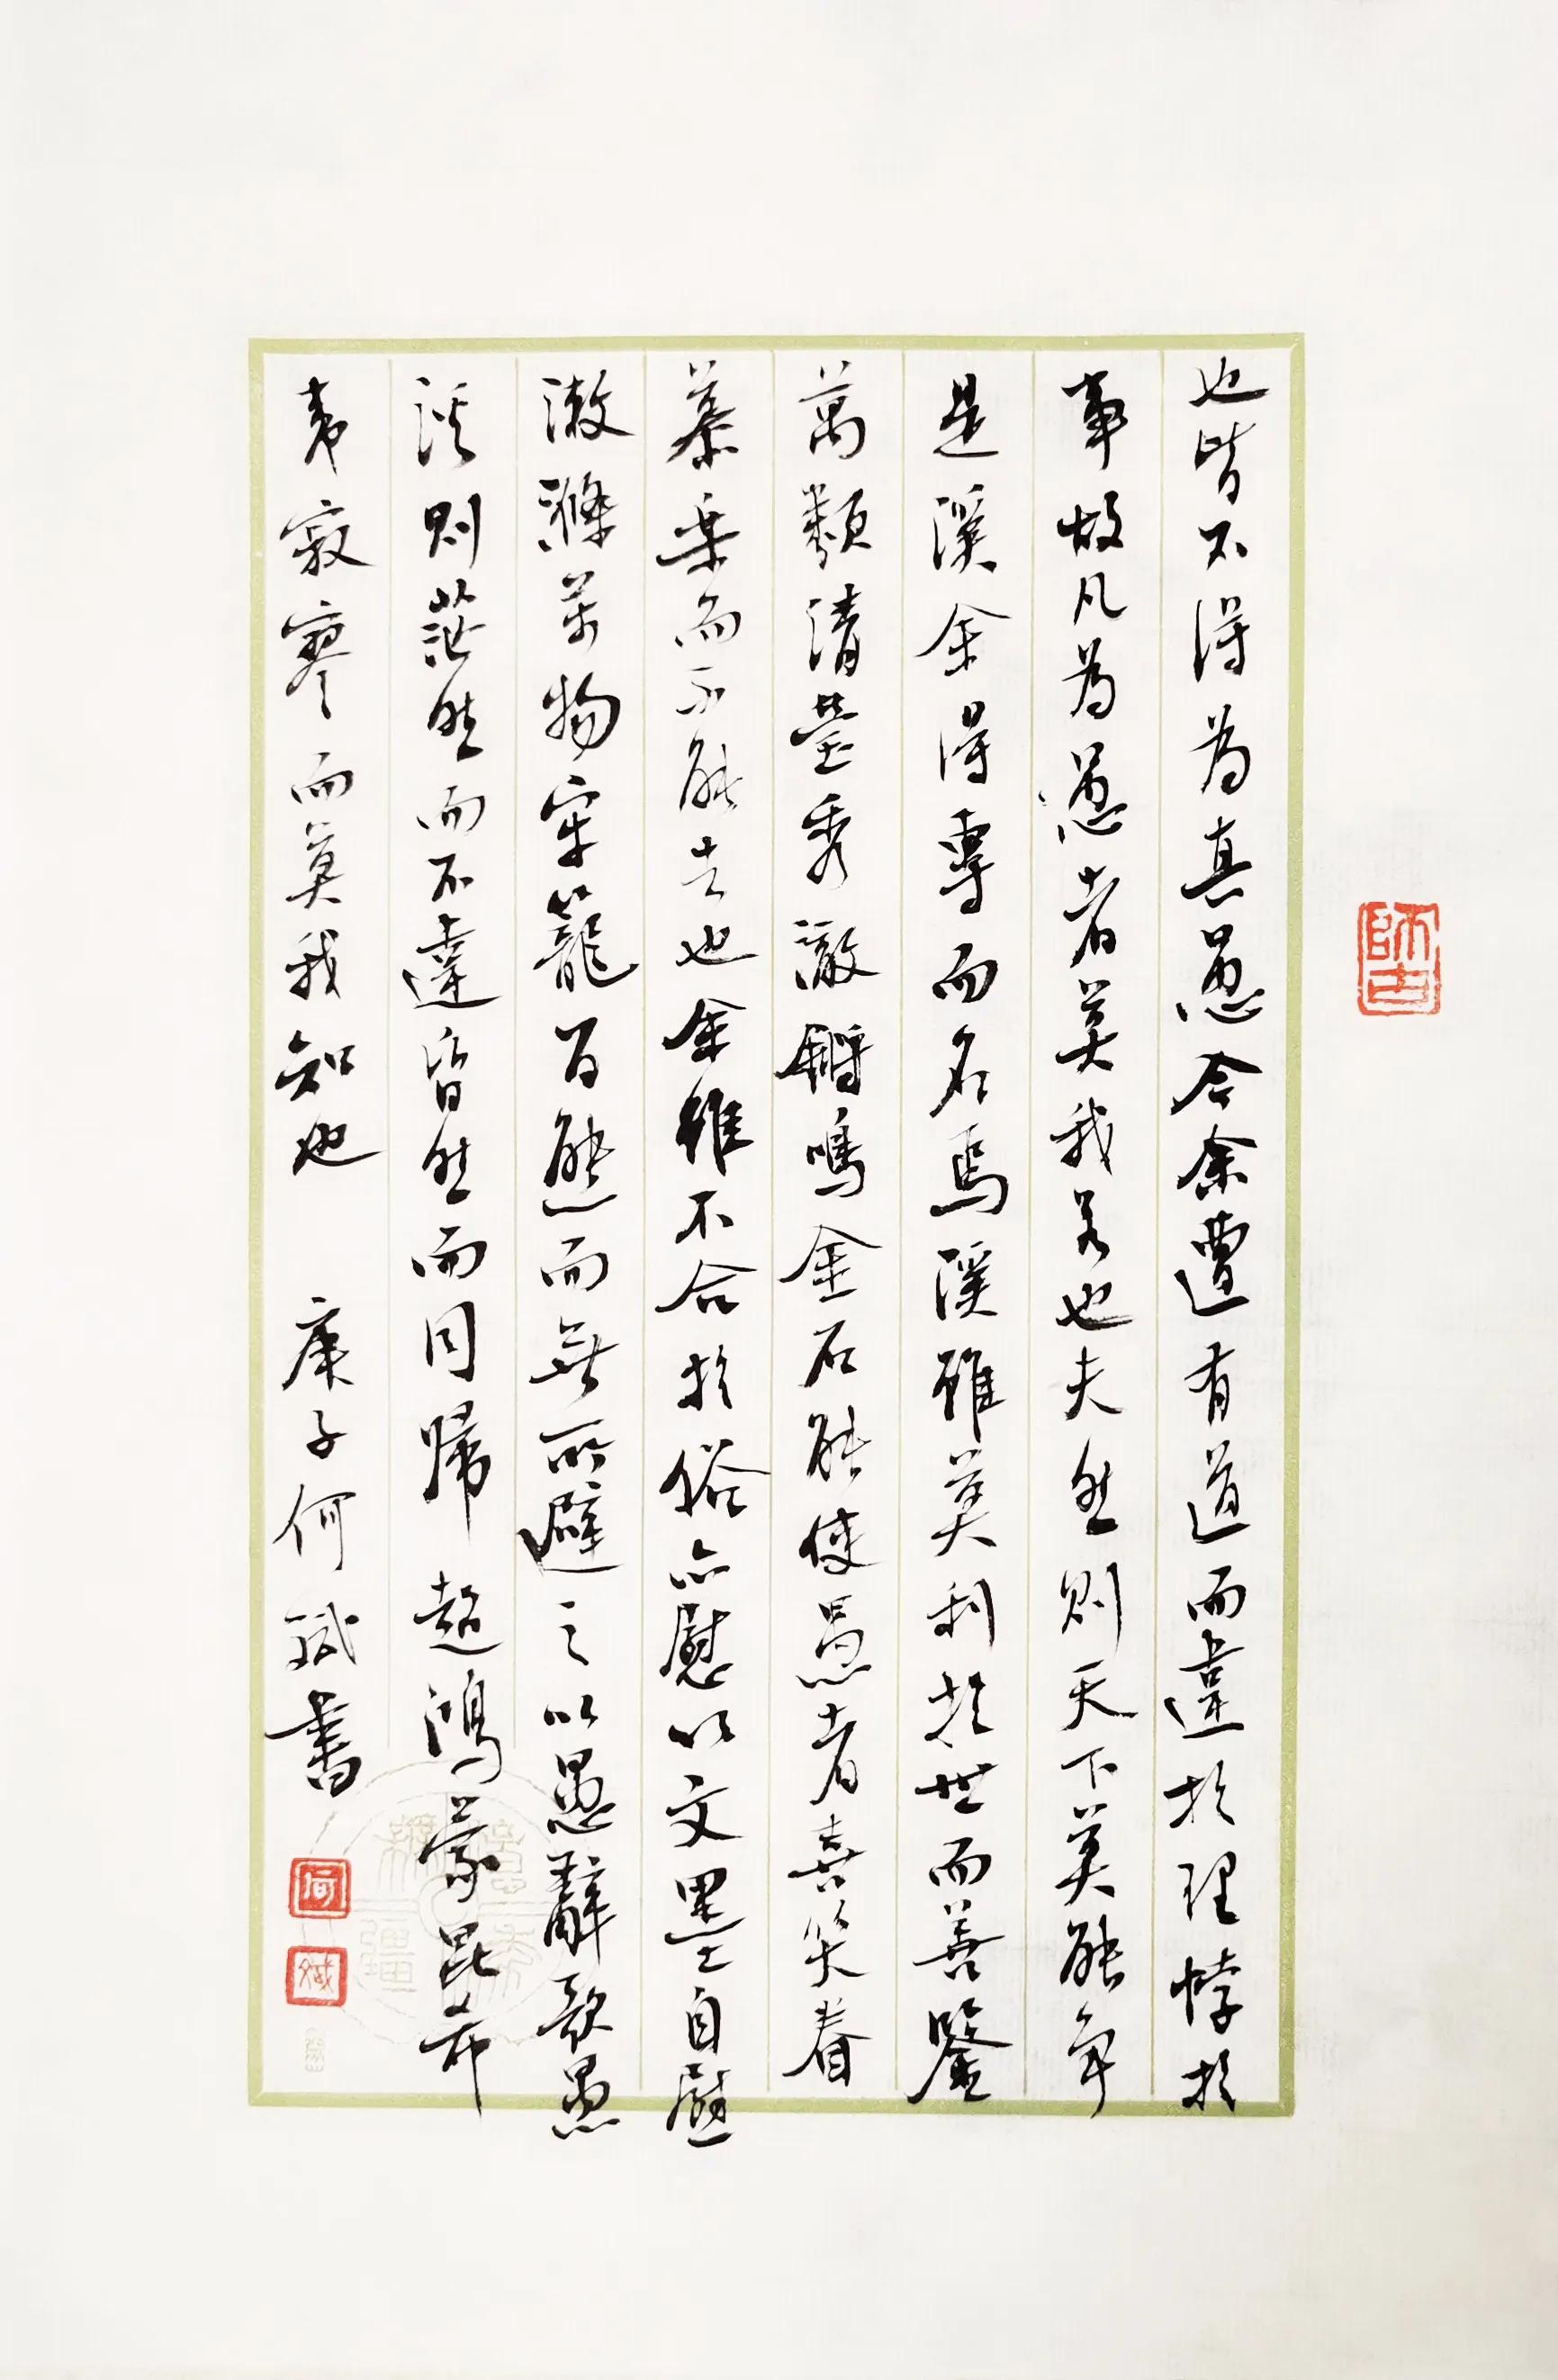 師古
也皆不得為真愚今余遭有道而違於理悖於
事故凡為愚者莫我若也夫然則天下莫能争
是溪余得專而名焉溪雖莫利於世而善鑒
萬類清瑩秀澈鏘鳴金石能使愚者喜笑眷
慕樂而不能去也余雖不合於俗亦慰以文墨自慰
漱滌萬物牢籠百態而無所避之以愚辭歌愚
溪則茫然而不違昏然而同歸超鴻蒙昆希
夷寂寥而莫我知也 庚子何斌書
何
斌